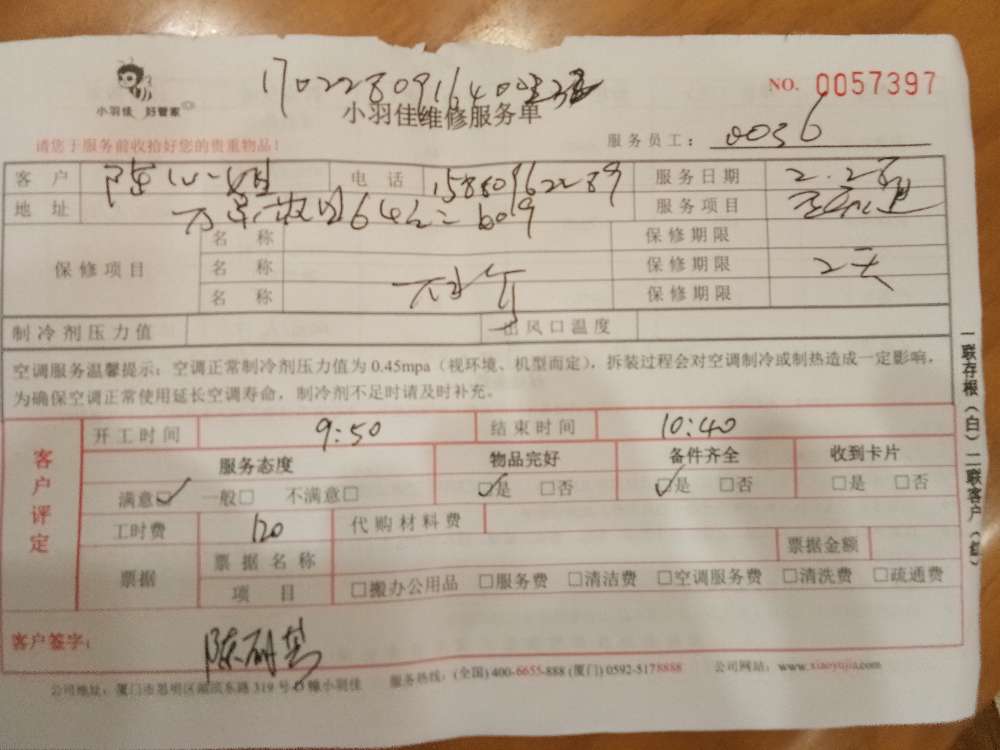 170228091640
NO. 0057397
小羽佳 好管家
小羽佳维修服务单
请您于服务前收拾好您的贵重物品！
服务员工： 0036
客 户 陈 电 话 15880962289 服务日期 2.28
地 址 604 609 服务项目
保修项目 名 称 保修期限
名 称 保修期限 2天
名 称 保修期限
制冷剂压力值 出风口温度
空调服务温馨提示：空调正常制冷剂压力值为 0.45mpa（视环境、机型而定），拆装过程会对空调制冷或制热造成一定影响，
为确保空调正常使用延长空调寿命，制冷剂不足时请及时补充。
客户评定
开工时间 9:50 结束时间 10:40
服务态度 物品完好 备件齐全 收到卡片
满意☑ 一般□ 不满意□ ☑是 □否 ☑是 □否 □是 □否
工时费 120 代购材料费
票据 票据名称 票据金额
项 目 □搬办公用品 □服务费 □清洁费 □空调服务费 □清洗费 □疏通费
客户签字： 陈耐
公司地址：厦门市思明区湖滨东路 319 号 D 幢小羽佳 服务热线：(全国) 400-6655-888 (厦门) 0592-5178888 公司网站：www.xiaoyujia.com
一联存根（白）二联客户（红）